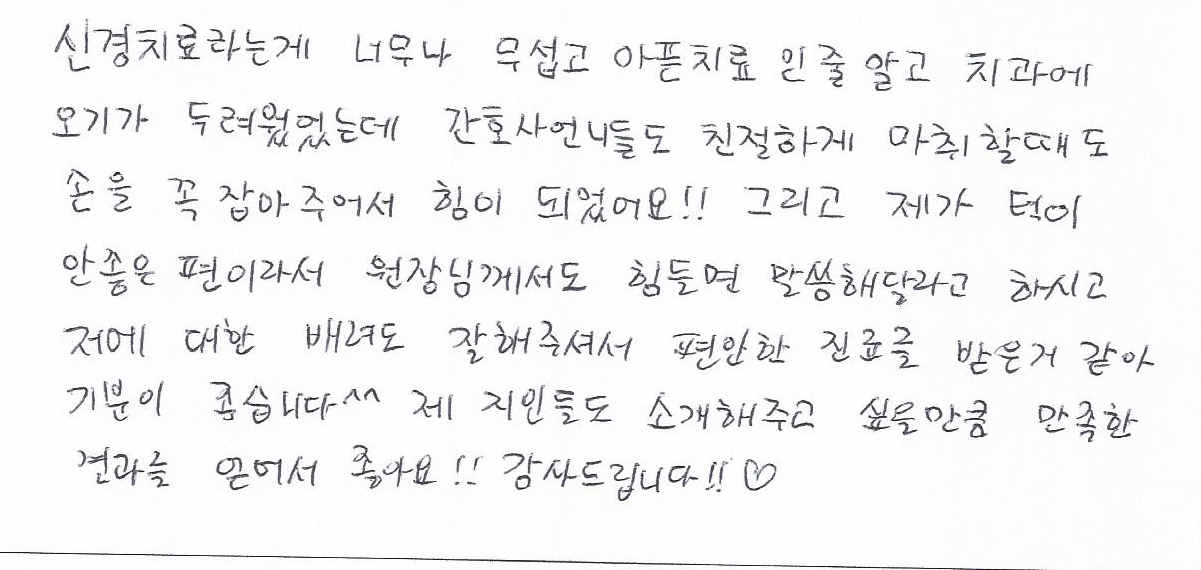 신경치료라는게 너무나 무섭고 아픈치료 인 줄 알고 치과에
오기가 두려웠었는데 간호사언니들도 친절하게 마취할때도
손을 꼭 잡아주어서 힘이 되었어요!! 그리고 제가 턱이
안좋은 편이라서 원장님께서도 힘들면 말씀해달라고 하시고
저에 대한 배려도 잘해주셔서 편안한 진료를 받은거 같아
기분이 좋습니다^^ 제 지인들도 소개해주고 싶을만큼 만족한
결과를 얻어서 좋아요!! 감사드립니다!! ♡